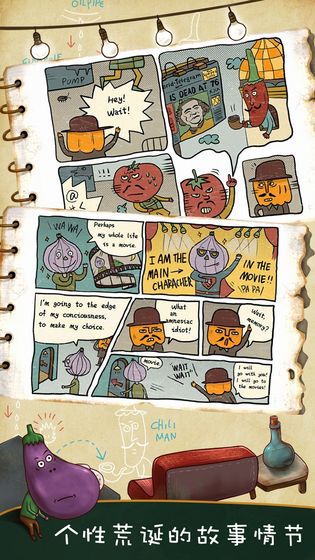 GILPIPE
PUMP
Hey!
Wait!
IS DEAD AT 70
@
WA WA!
Perhaps
my whole life
is a movie.
I AM THE
MAIN →
CHARACHER
IN THE
MOVIE!!
PA PA!
I'm going to the edge
of my conciousness,
to make my choice.
What
an
amnesiac
idiot!
Wait,
memory?
movie
WAIT
WAIT
I will
go with you!
I will go to
the movies!
CHILI
MAN
个性荒诞的故事情节